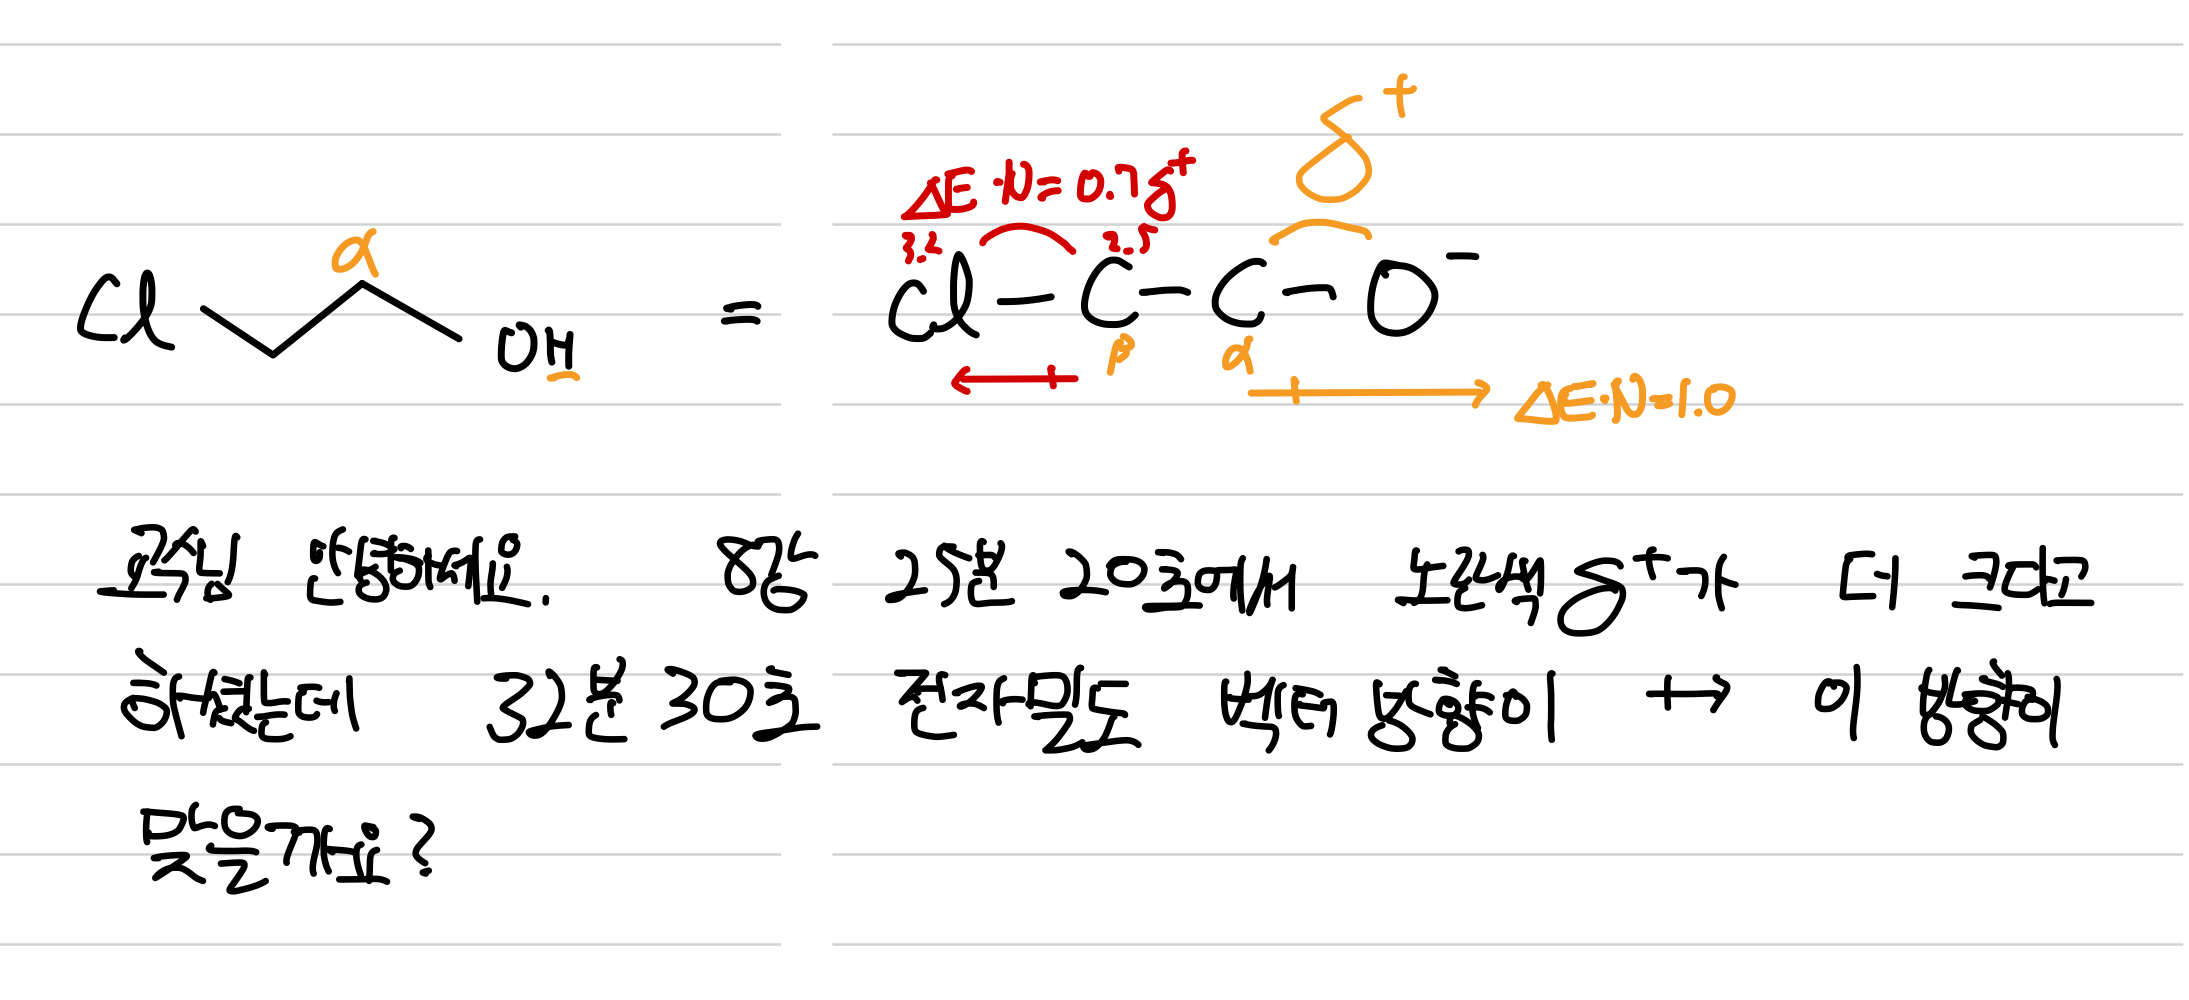 δ⁺
ΔE·N=0.7 δ⁺
α
3.2 2.5
Cl OH = Cl-C-C-O⁻
β α
ΔE·N=1.0
교수님 안녕하세요. 8강 25분 20초에서 노란색 δ⁺가 더 크다고
하셨는데 32분 30초 전자밀도 벡터 방향이 +→ 이 방향이
맞을까요?